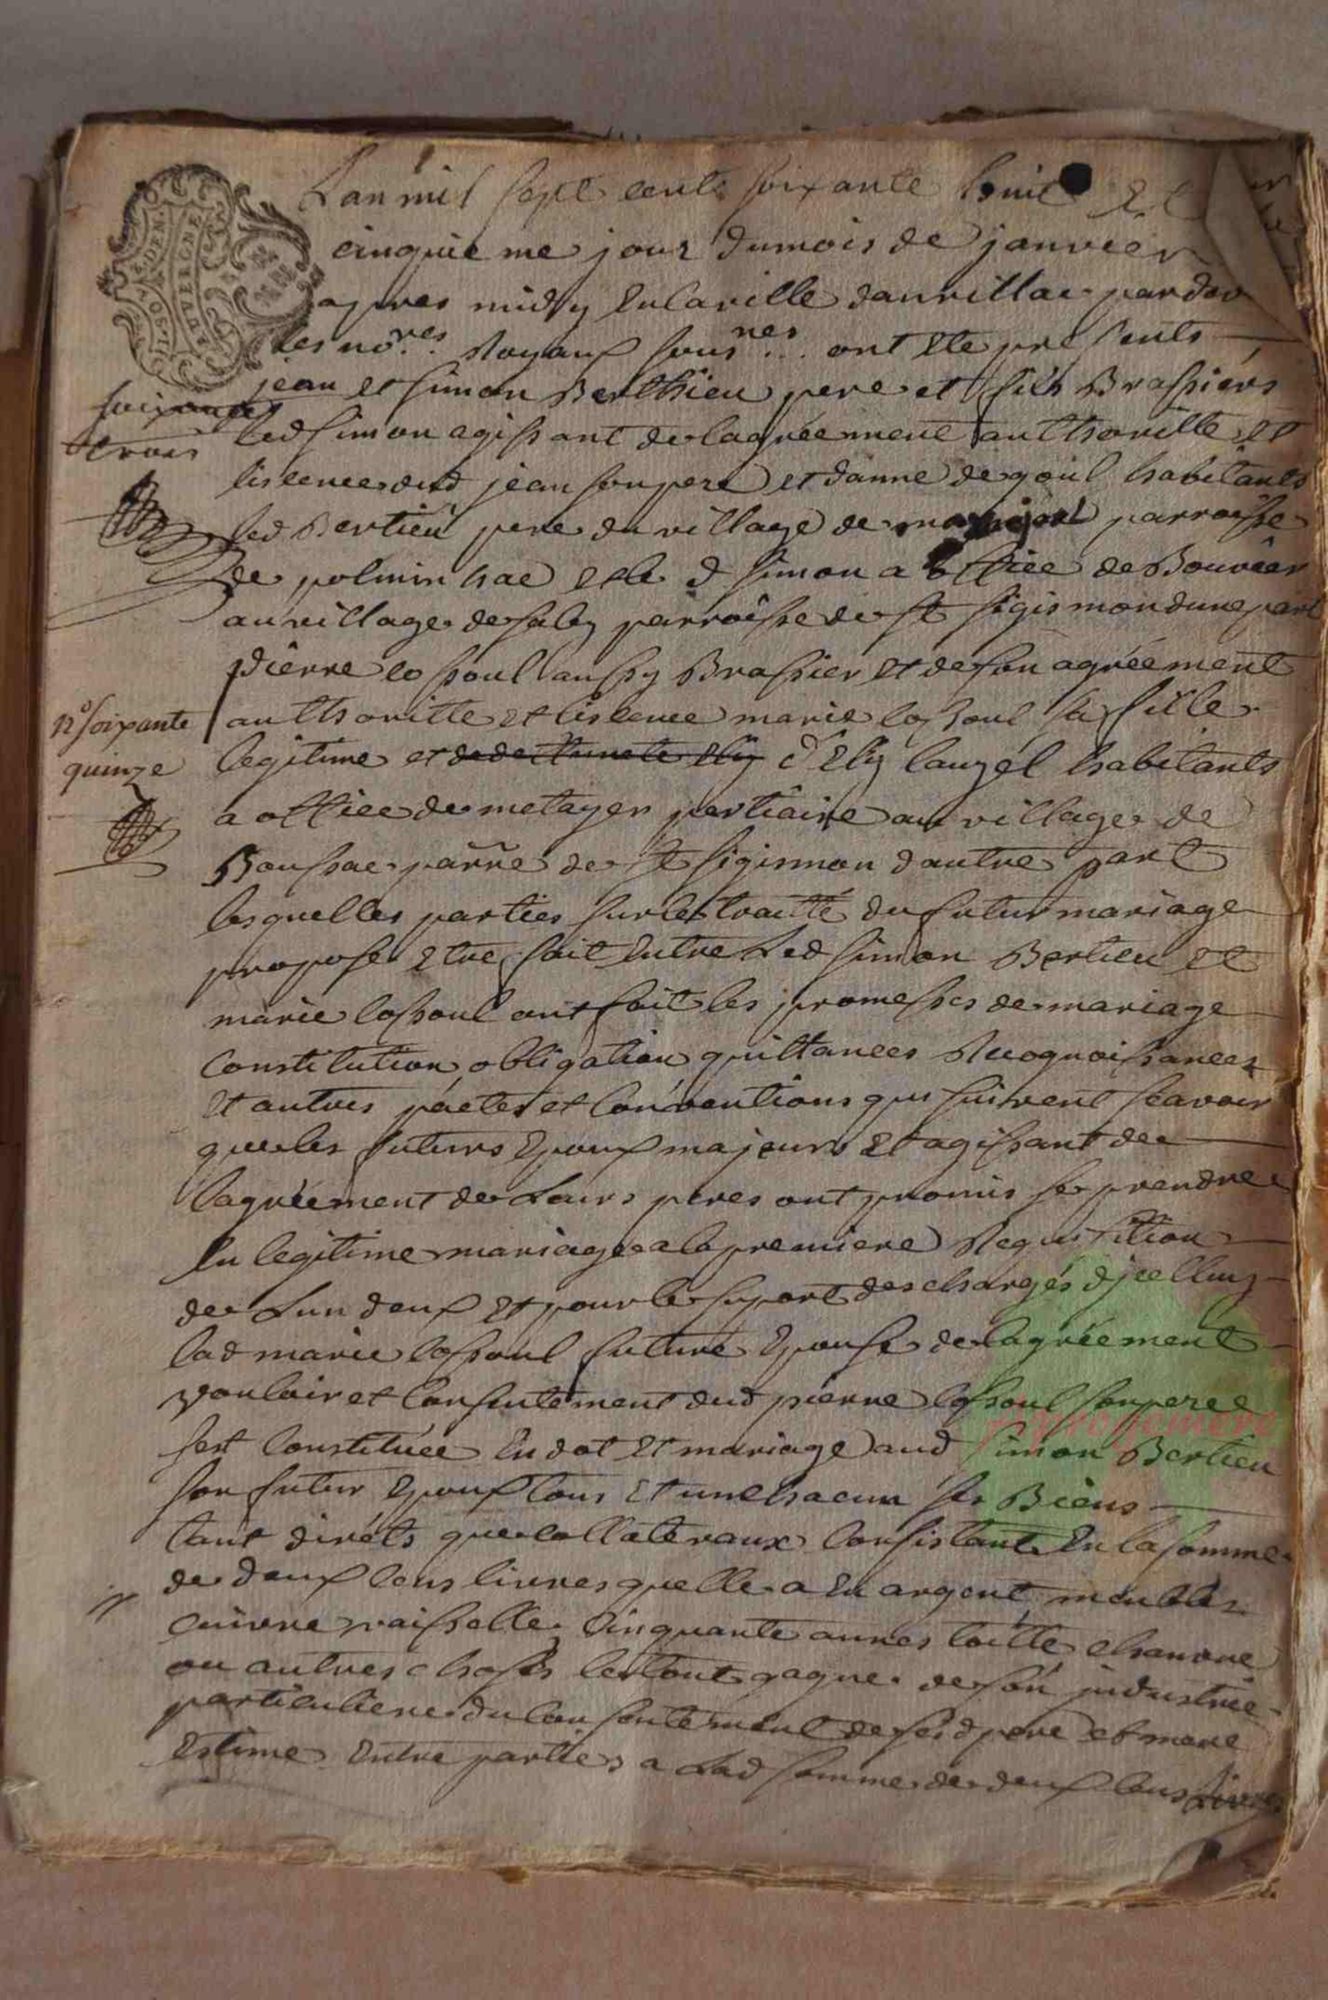 Lan mil sept cents soixante huit et
cinquieme jour du mois de janvier
apres midy en la ville daurillac par dev
les no.res Royaux sous.nes ont ete presents
jean et simon Berthieu pere et fils Brassiers
soixante
trois
led simon agissant de lagréement authoritté et
lisence dud jean son pere et danne de goul habitants
led Bertieu pere du village de parroisse
de polminhac et le d simon a office de Bouvier
au village de parroisse de st sigismond une part
pierre lossoul aussy Brassier et de son agréement
n.o soixante
quinze
authoritte et lisence marie lossoul sa fille
legitime et d'Ely lauzel habitants
a office de metayer partiaire au village de
Boussac parre de st sigismon dautre part
lesquelles parties sur le traitté du futur mariage
propose Etre fait Entre Led simon Bertieu et
marie lossoul ont fait les promesses de mariage
Constitution obligation quittances Recognoissances
et autres pactes et Conventions qui suivent scavoir
que les futurs Epoux majeurs et agissant de
lagréement de Leurs peres ont promis se prendre
En legitime mariage a la premiere Requisition
de Lun deux et pour le suport des charges djcelluy
lad marie lossoul future Epouse de lagréement
vouloir et Consentement dud pierre lossoul son pere
sest Constituée En dot et mariage aud simon Bertieu
son futur Epoux tous et un chacun ses Biens
tant diréts que collateraux Consistant En la somme
de deux Cens livres quelle a En argent meubles
cuivre vaisselle Cinquante aunes toille chanvre
ou autres choses le tout gagné de son industrie
particuliere du Consentement de sesd pere et mere
Estimé Entre parties a Lad somme de deux Cens livres
generoyer